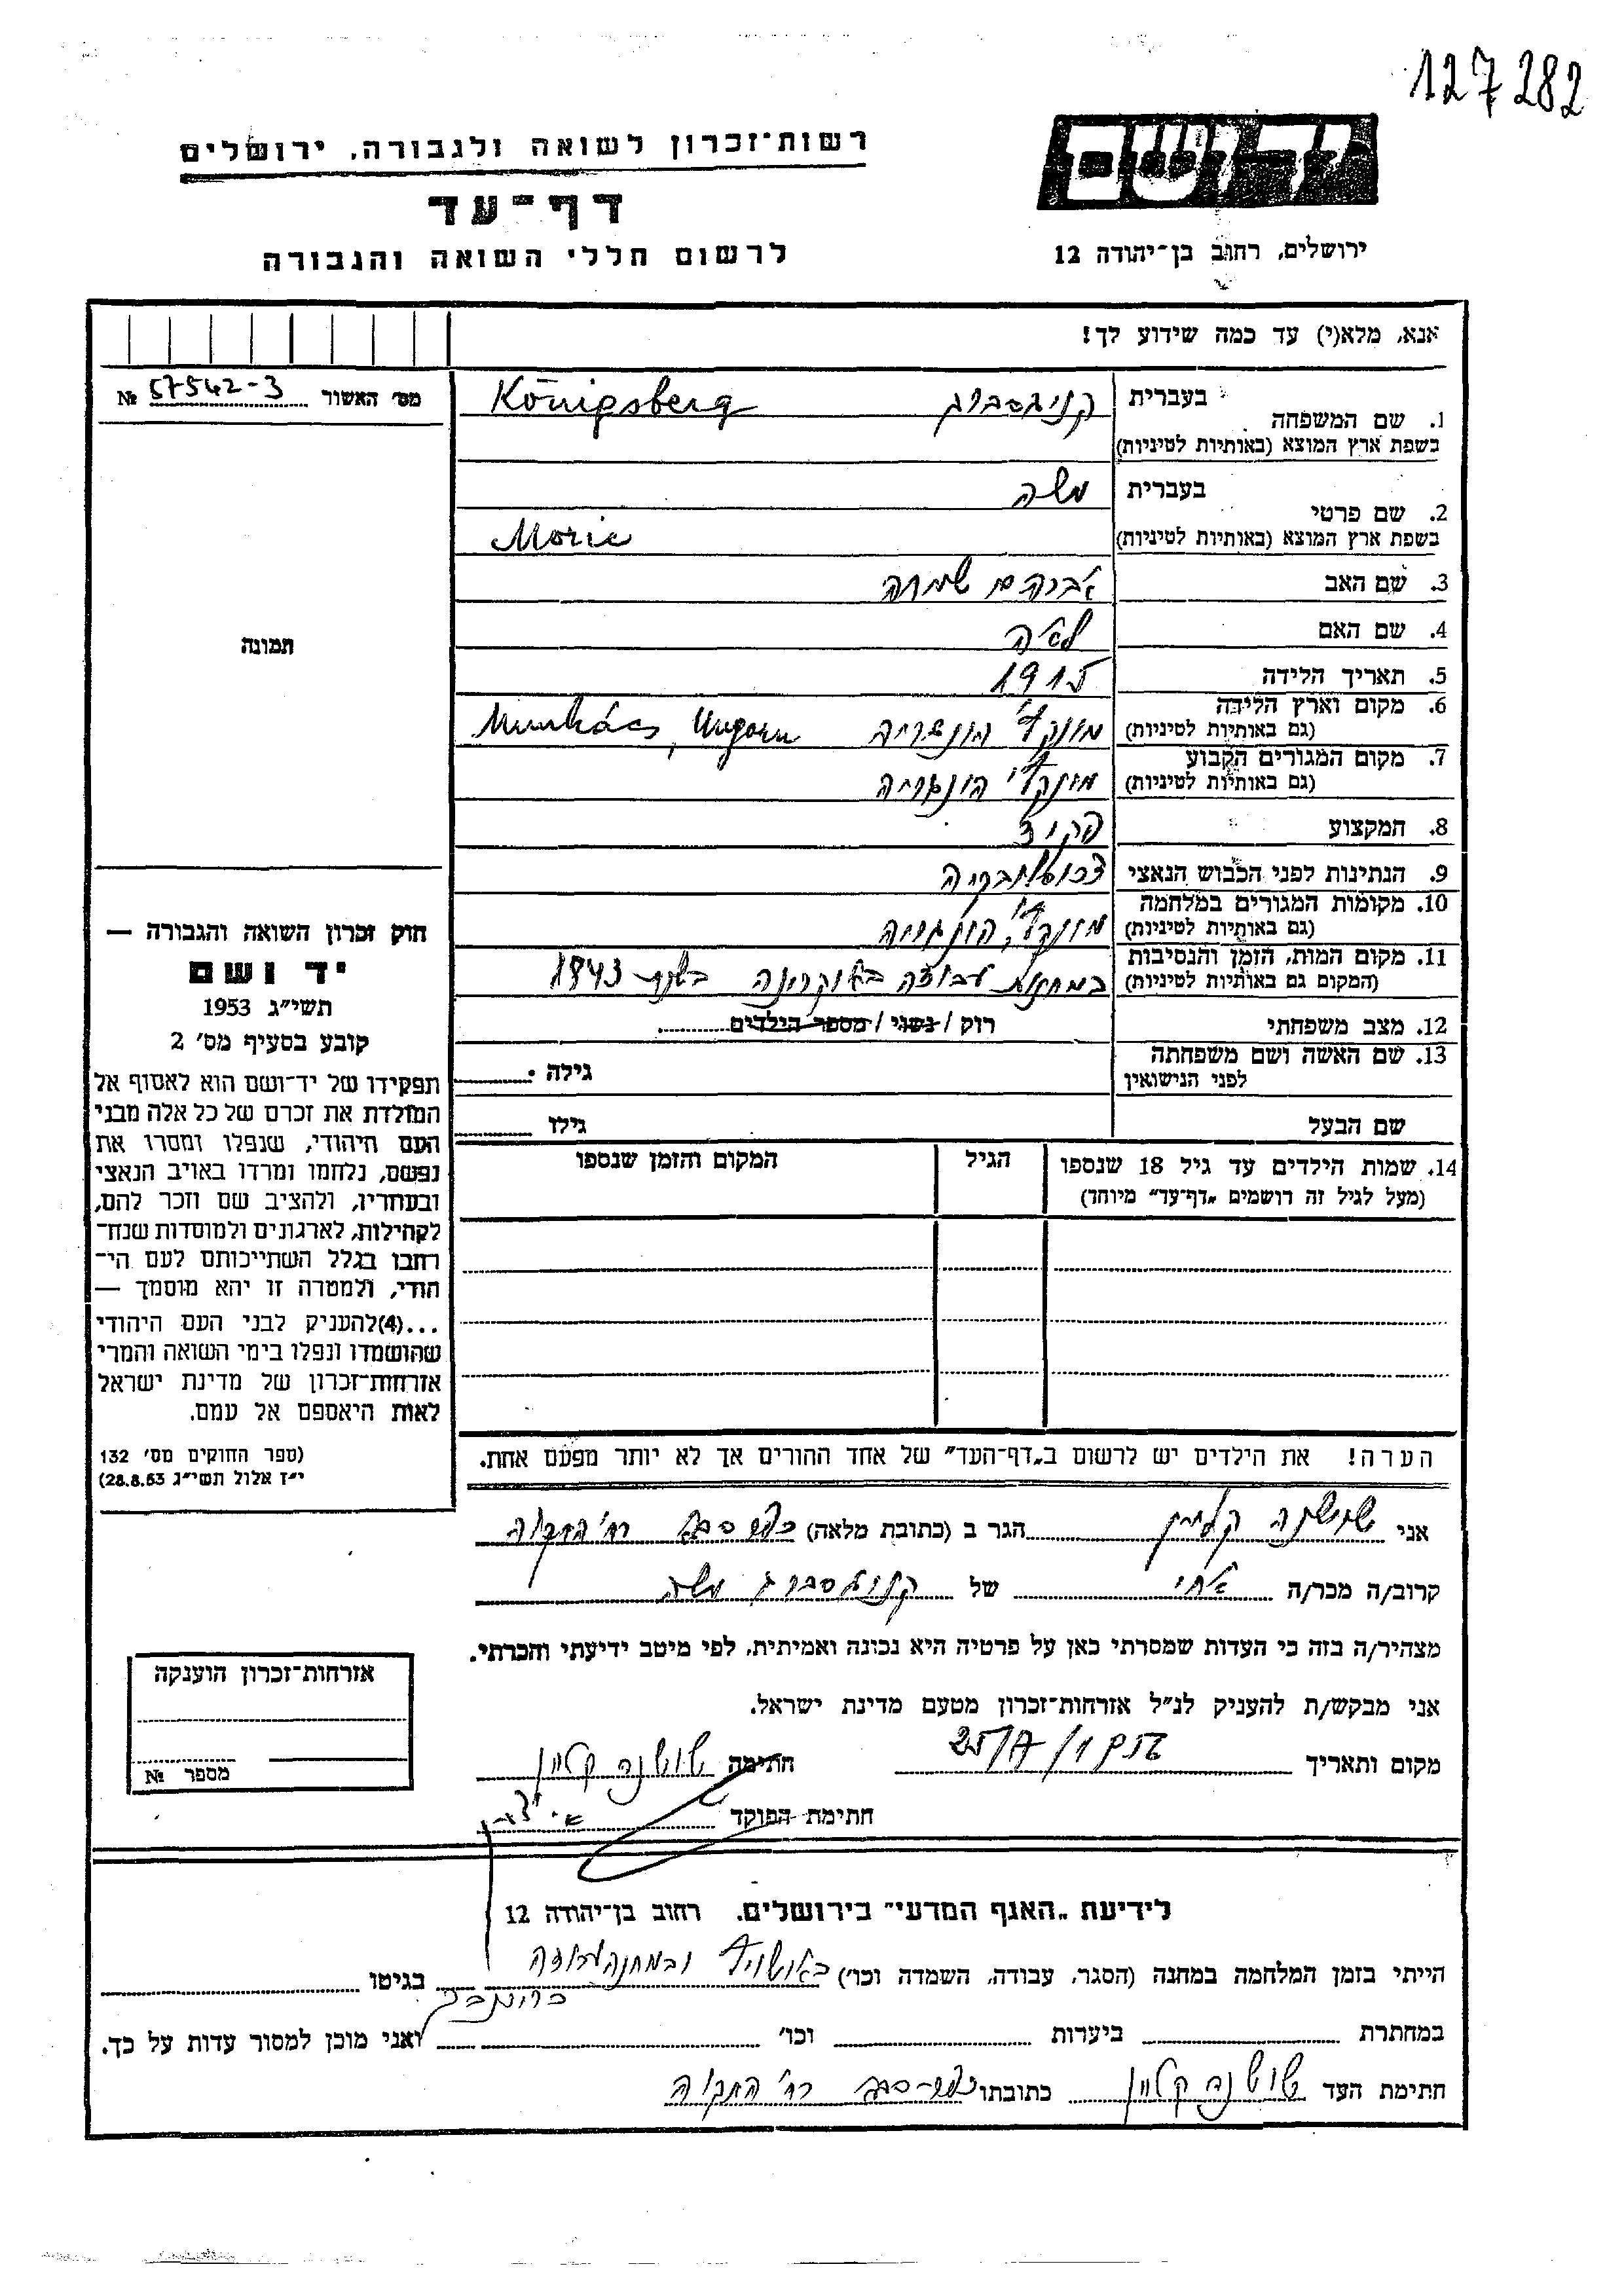 127282
יד ושם
רשות־זכרון לשואה ולגבורה, ירושלים
דף־עד
לרשום חללי השואה והגבורה
ירושלים, רחוב בן־יהודה 12
אנא, מלא(י) עד כמה שידוע לך!
מס׳ האשור 57542-3 №
תמונה
חוק זכרון השואה והגבורה —
יד ושם
תשי״ג 1953
קובע בסעיף מס׳ 2
תפקידו של יד־ושם הוא לאסוף אל
המולדת את זכרם של כל אלה מבני
העם היהודי, שנפלו ומסרו את
נפשם, נלחמו ומרדו באויב הנאצי
ובעוזריו, ולהציב שם וזכר להם,
לקהילות, לארגונים ולמוסדות שנח־
רבו בגלל השתייכותם לעם הי־
הודי, ולמטרה זו יהא מוסמך —
...(4) להעניק לבני העם היהודי
שהושמדו ונפלו בימי השואה והמרי
אזרחות־זכרון של מדינת ישראל
לאות היאספם אל עמם.
(ספר החוקים מס׳ 132
י״ז אלול תשי״ג 28.8.53)
1. שם המשפחה בעברית קניגסברג Königsberg
בשפת ארץ המוצא (באותיות לטיניות)
2. שם פרטי בעברית משה
בשפת ארץ המוצא (באותיות לטיניות) Moric
3. שם האב אברהם שמחה
4. שם האם לאה
5. תאריך הלידה 1915
6. מקום וארץ הלידה (גם באותיות לטיניות) מונקץ׳ הונגריה Munkács, Ungarn
7. מקום המגורים הקבוע (גם באותיות לטיניות) מונקץ׳ הונגריה
8. המקצוע פקיד
9. הנתינות לפני הכבוש הנאצי צכוסלובקיה
10. מקומות המגורים במלחמה (גם באותיות לטיניות) מונקץ׳, הונגריה
11. מקום המות, הזמן והנסיבות (המקום גם באותיות לטיניות) במחנות עבודה באוקרינה בשנת 1943
12. מצב משפחתי רוק / נשוי / מספר הילדים
13. שם האשה ושם משפחתה לפני הנישואין גילה
שם הבעל גילו
14. שמות הילדים עד גיל 18 שנספו (מעל לגיל זה רושמים „דף־עד״ מיוחד) הגיל המקום והזמן שנספו
הערה! את הילדים יש לרשום ב„דף־העד״ של אחד ההורים אך לא יותר מפעם אחת.
אני שושנה קליין הגר ב (כתובת מלאה) כפר סבא רח׳ התקוה
קרוב/ה מכר/ה אחי של קניגסברג משה
מצהיר/ה בזה כי העדות שמסרתי כאן על פרטיה היא נכונה ואמיתית, לפי מיטב ידיעתי והכרתי.
אני מבקש/ת להעניק לנ״ל אזרחות־זכרון מטעם מדינת ישראל.
מקום ותאריך חתימה שושנה קליין
חתימת הפוקד
אזרחות־זכרון הוענקה
מספר №
לידיעת „האגף המדעי״ בירושלים, רחוב בן־יהודה 12
הייתי בזמן המלחמה במחנה (הסגר, עבודה, השמדה וכו׳) באושויץ ובמחנה עבודה בגיטו
במחתרת ביערות וכו׳ ואני מוכן למסור עדות על כך.
חתימת העד שושנה קליין כתובתו כפר-סבא רח׳ התקוה